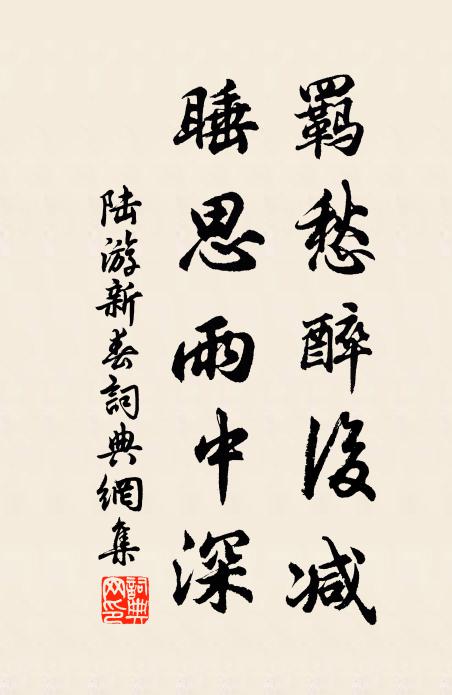 羈愁醉後减
睡思雨中深
陆游新春詞典網集
詞典网印